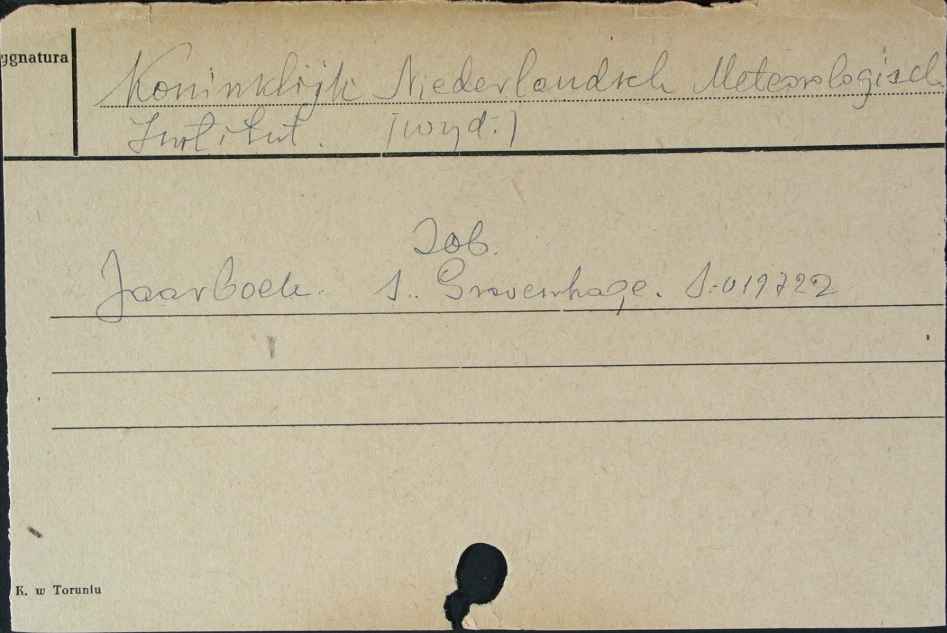 ygnatura
Koninklijk Niederlandsch Meteorologisch
Institut. [wyd.]
Zob.
Jaarboek. s. Gravenhage. S.019722
K. w Toruniu